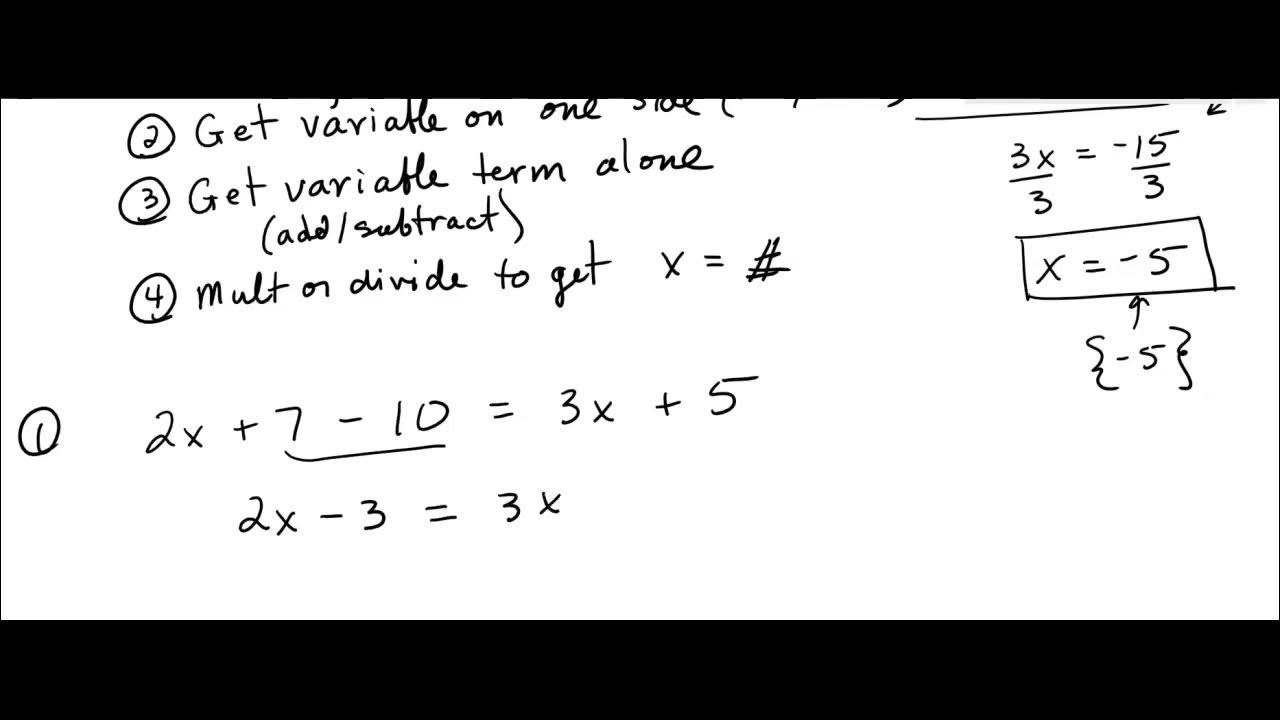 ② Get variable on one side (
③ Get variable term alone
(add/subtract)
④ Mult or divide to get x = #
3x = -15
3 3
x = -5
{-5}
① 2x + 7 - 10 = 3x + 5
2x - 3 = 3x